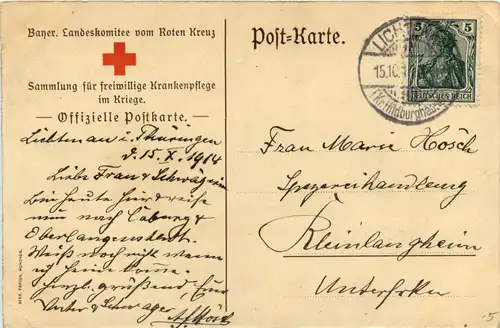 Bayer. Landeskomitee vom Roten Kreuz
Sammlung für freiwillige Krankenpflege
im Kriege.
Offizielle Postkarte.
i. Thüringen
d. 15. X. 1914
Liebe Frau & Schwägerin
Bin heute hier & reise
nun nach Coburg &
Weiß noch nicht wann
ich heim komme.
herzl. grüßend Euer
Vater & Schwager
MAX PARCUS, MÜNCHEN.
Post-Karte.
LICH
15.10.
Kr. Hildburghausen
5 5
DEUTSCHES REICH
Frau Marie Hösch
Spezereihandlung
Kleinlangheim
Unterfrken